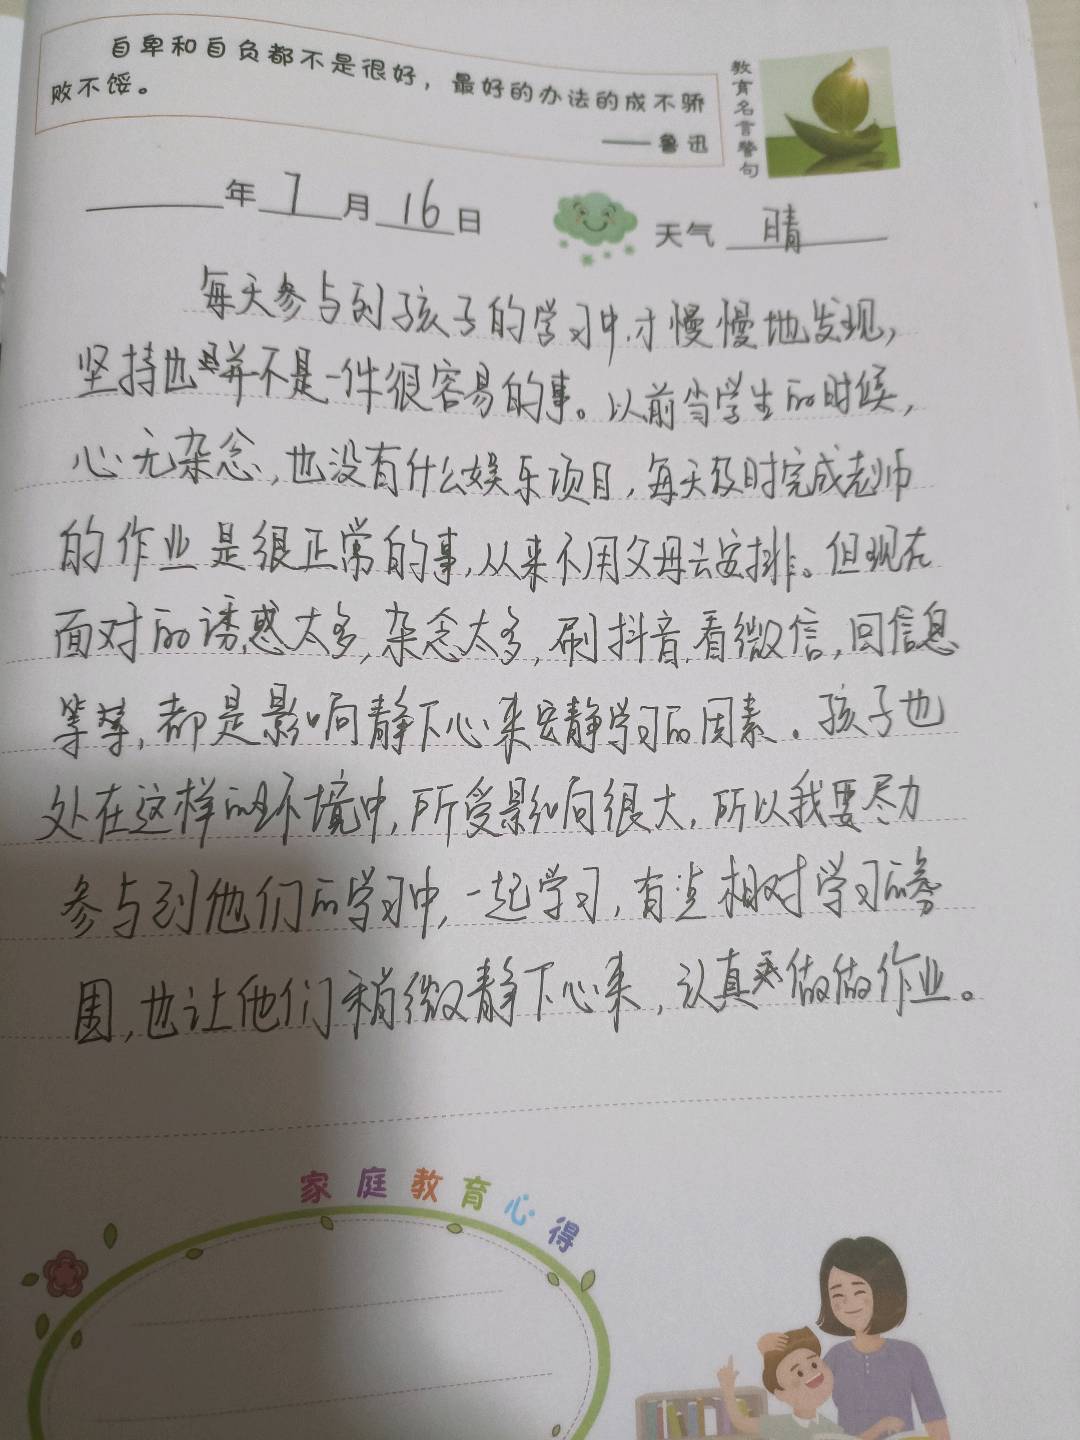 自卑和自负都不是很好，最好的办法的成不骄
败不馁。
——鲁迅
教育名言警句
年 7 月 16 日 天气 晴
每天参与到孩子的学习中，才慢慢地发现，
坚持也并不是一件很容易的事。以前当学生的时候，
心无杂念，也没有什么娱乐项目，每天及时完成老师
的作业是很正常的事，从来不用父母去安排。但现在
面对的诱惑太多，杂念太多，刷抖音，看微信，回信息
等等，都是影响静下心来安静学习的因素。孩子也
处在这样的环境中，所受影响很大，所以我要尽力
参与到他们的学习中，一起学习，有些相对学习的氛
围，也让他们稍微静下心来，认真做做作业。
家庭教育心得